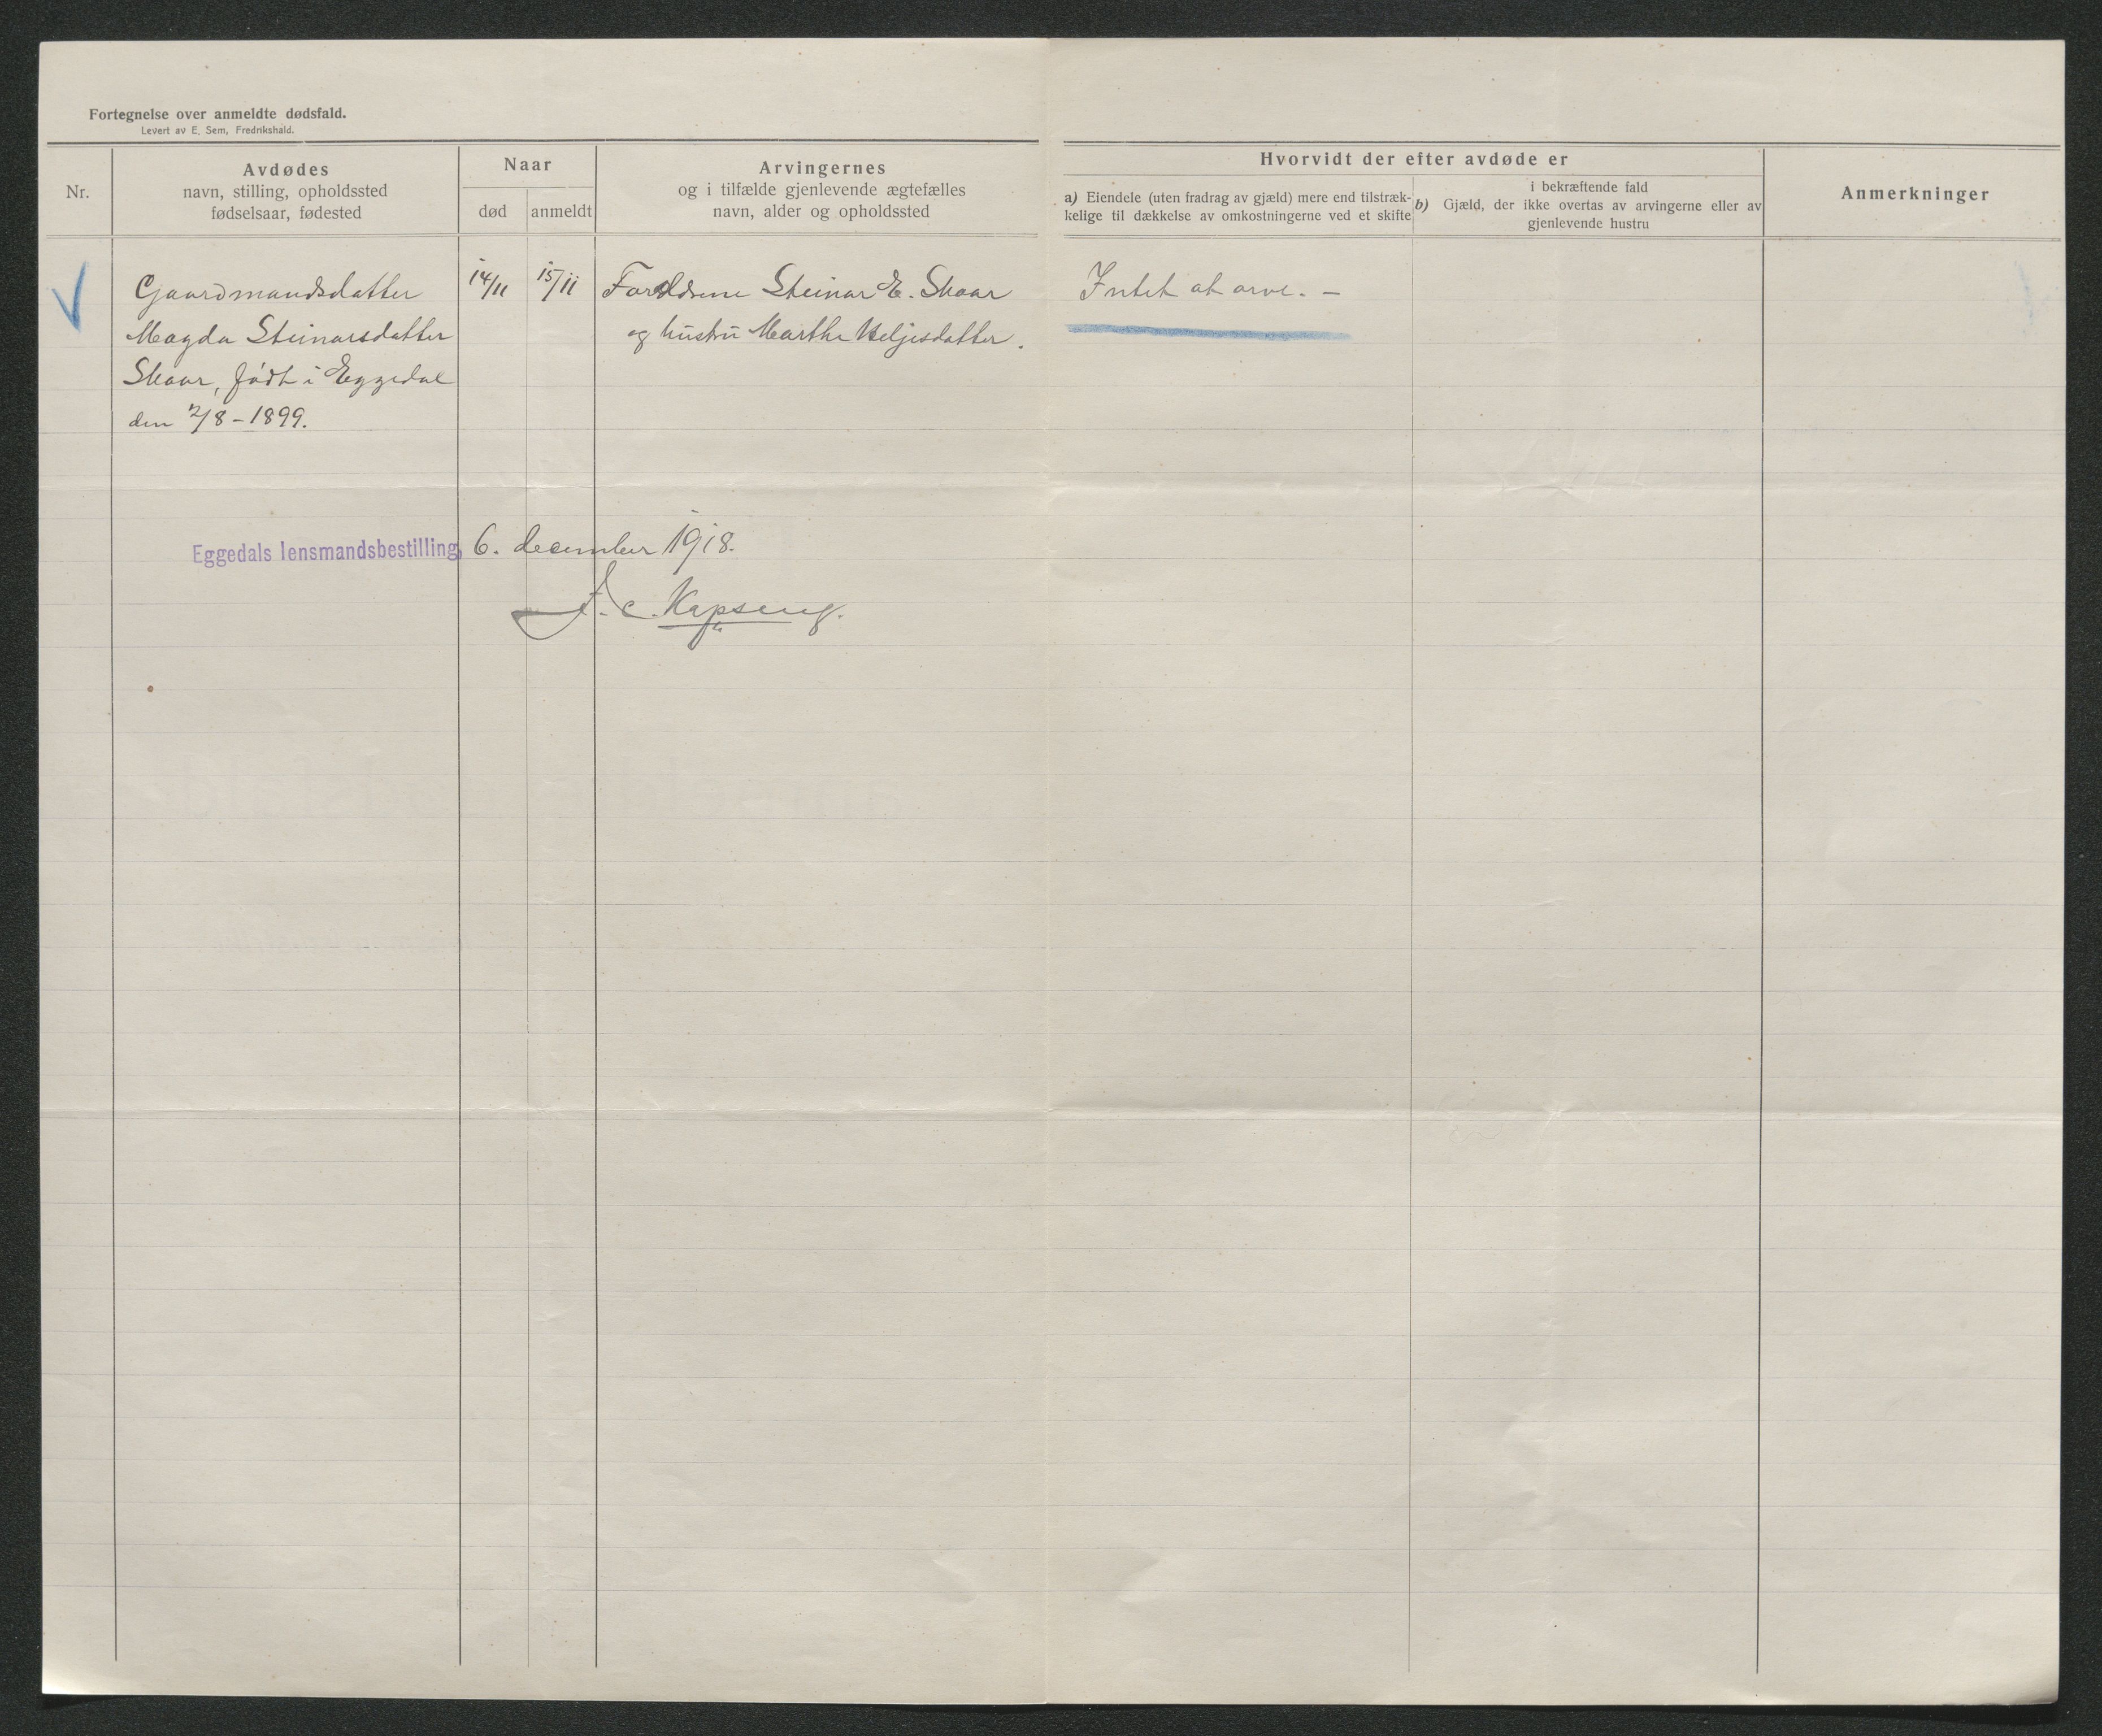 Fortegnelse over anmeldte dødsfald.
Levert av E. Sem, Fredrikshald.
Nr.
Avdødes
navn, stilling, opholdssted
fødselsaar, fødested
Naar
død
anmeldt
Arvingernes
og i tilfælde gjenlevende ægtefælles
navn, alder og opholdssted
Hvorvidt der efter avdøde er
a) Eiendele (uten fradrag av gjæld) mere end tilstræk-
kelige til dækkelse av omkostningerne ved et skifte
i bekræftende fald
b) Gjæld, der ikke overtas av arvingerne eller av
gjenlevende hustru
Anmerkninger
Gaardmandsdatter
Magda Steinarsdatter
Skaar, født i Eggedal
den 2/8 - 1899.
14/11
15/11
Forældrene Steinar E. Skaar
og hustru Marthe Heljesdatter.
Intet at arve. –
Eggedals lensmandsbestilling, 6. december 1918.